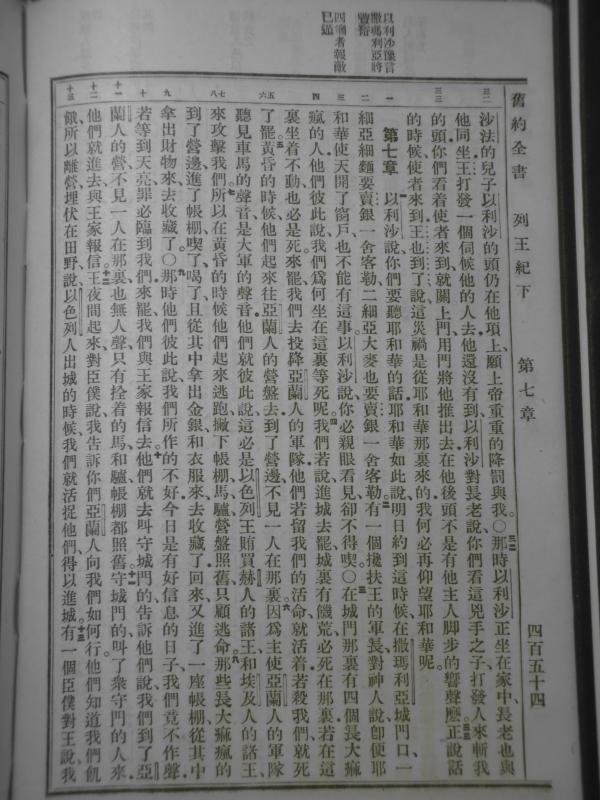 舊約全書 列王紀下 第七章 四百五十四
以利沙豫言
撒瑪利亞將
豐裕
四癩者報敵
已遁
沙法的兒子以利沙的頭仍在他項上、願上帝重重的降罰與我。○那時以利沙正坐在家中、長老也與
他同坐、王打發一個伺候他的人去、他還沒有到、以利沙對長老說、你們看這兇手之子、打發人來斬我
的頭、你們看着使者來到、就關上門、用門將他推出去、在他後頭不是有他主人脚步的響聲麽。正說話
的時候、使者來到、王也到了、說、這災禍是從耶和華那裏來的、我何必再仰望耶和華呢。
第七章 以利沙說、你們要聽耶和華的話、耶和華如此說、明日約到這時候、在撒瑪利亞城門口、一
細亞細麵要賣銀一舍客勒、二細亞大麥也要賣銀一舍客勒。有一個攙扶王的軍長對神人說、卽便耶
和華使天開了窗戶、也不能有這事、以利沙說、你必親眼看見、卻不得喫。○在城門那裏有四個長大痲
瘋的人、他們彼此說、我們爲何坐在這裏等死呢。我們若說進城去罷、城裏有饑荒、必死在那裏、若在這
裏坐着不動、也必是死、來罷、我們去投降亞蘭人的軍隊、他們若留我們的活命、就活着、若殺我們、就死
了罷。黃昏的時候、他們起來往亞蘭人的營盤去、到了營邊、不見一人在那裏。因爲主使亞蘭人的軍隊
聽見車馬的聲音、是大軍的聲音、他們就彼此說、這必是以色列王賄買赫人的諸王和埃及人的諸王
來攻擊我們。所以在黃昏的時候、他們起來逃跑、撇下帳棚馬驢、營盤照舊、只顧逃命。那些長大痲瘋的
到了營邊、進了帳棚、喫了喝了、且從其中拿出金銀和衣服來、去收藏了、回來又進了一座帳棚、從其中
拿出財物來去收藏了。○那時他們彼此說、我們所作的不好、今日是有好信息的日子、我們竟不作聲、
若等到天亮、罪必臨到我們、來罷、我們與王家報信去。他們就去叫守城門的、告訴他們說、我們到了亞
蘭人的營、不見一人在那裏、也無人聲、只有拴着的馬和驢、帳棚都照舊。守城門的叫了衆守門的人來、
他們就進去與王家報信。王夜間起來、對臣僕說、我告訴你們亞蘭人向我們如何行、他們知道我們飢
餓、所以離營、埋伏在田野、說、以色列人出城的時候、我們就活捉他們、得以進城。有一個臣僕對王說、我